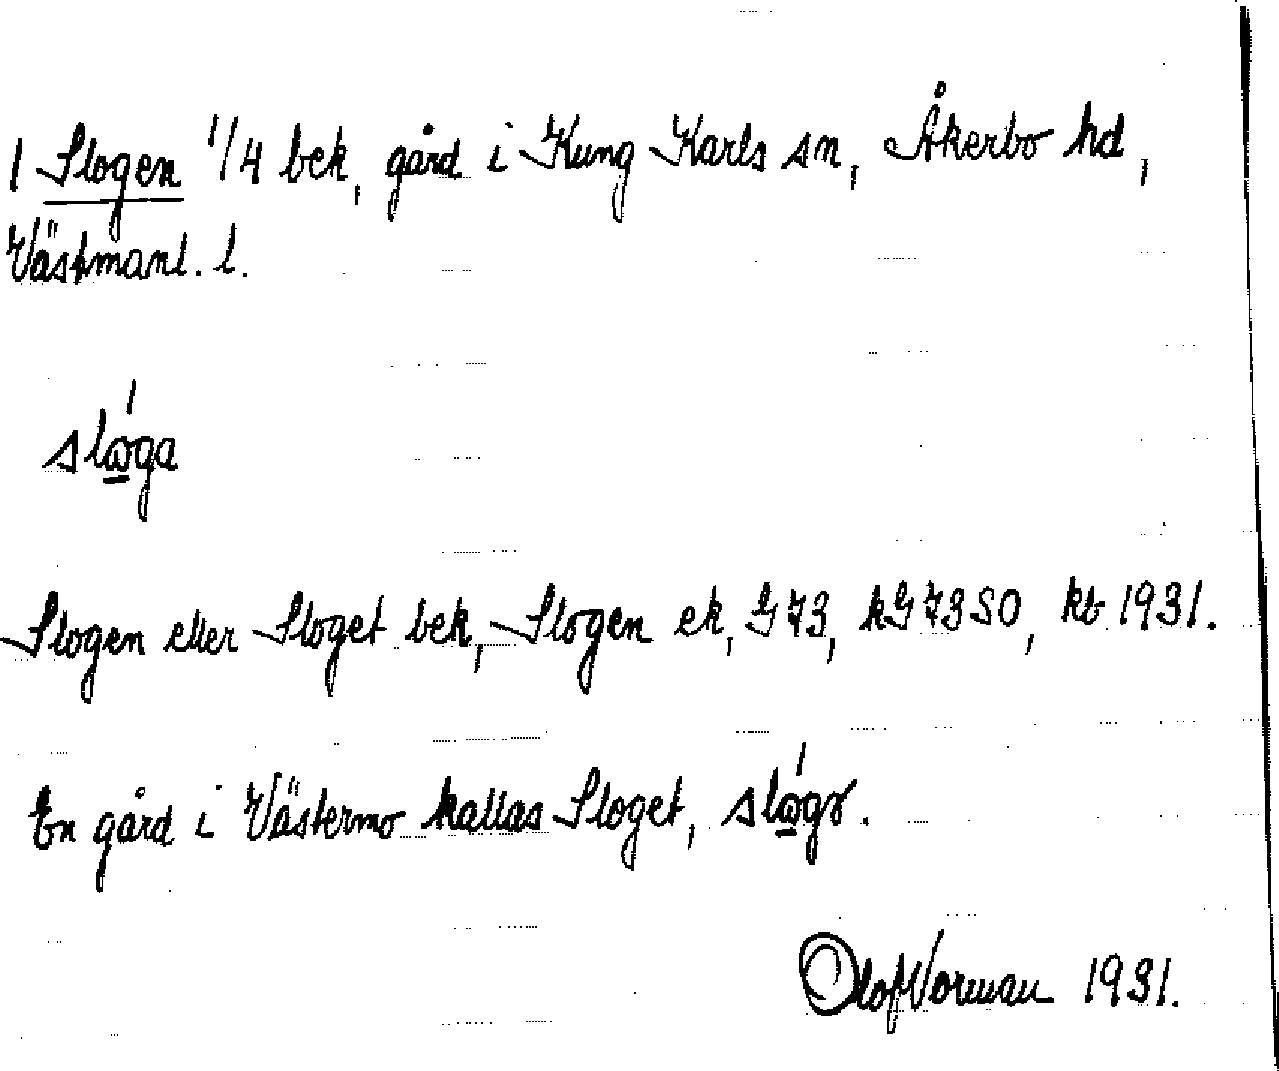 1 Slogen 1/4 bek, gård i Kung Karls sn, Åkerbo hd,
Västmanl. l.
slǿ̱ga
Slogen eller Sloget bek, Slogen ek, G73, kG73SO, kb 1931.
En gård i Västermo kallas Sloget,
Olof Norman 1931.